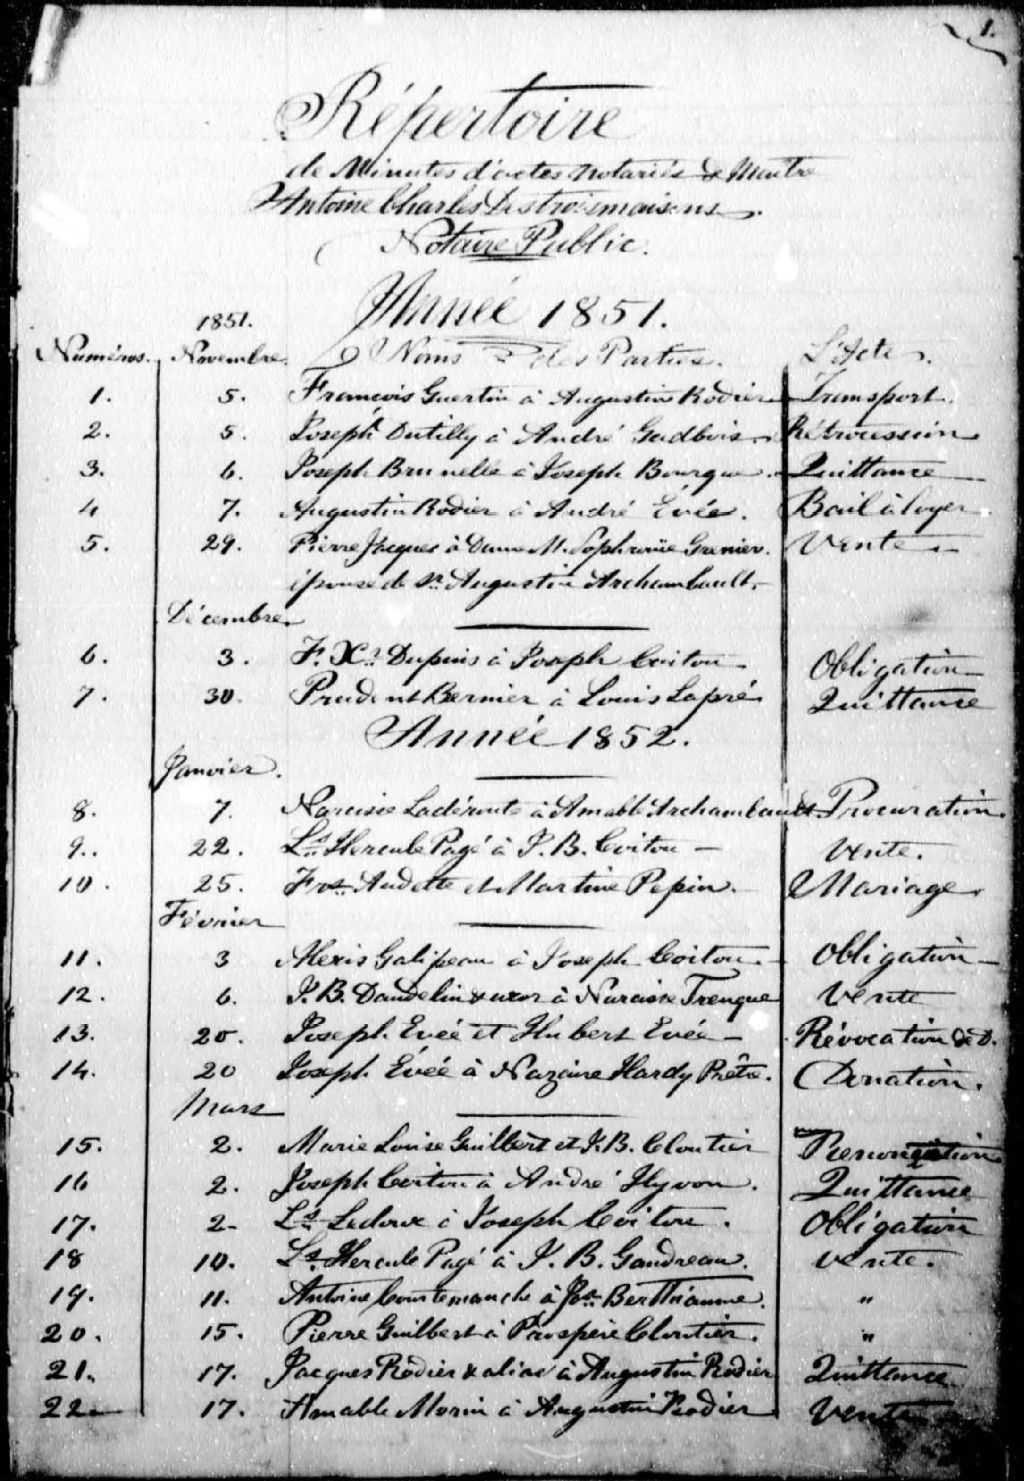 1.
Répertoire
de Minutes d'actes notariés de Maître
Antoine Charles Destroismaisons.
Notaire Public.
Année 1851.
1851.
Numéros. Novembre. Noms des Parties. L'Acte.
1. 5. François Guertin à Augustin Rodier Transport.
2. 5. Joseph Dutilly à André Gadbois. Rétrocession
3. 6. Joseph Brunelle à Joseph Bourque Quittance
4 7. Augustin Rodier à André Evée. Bail à loyer
5. 29. Pierre Jacques à Dame M. Sophronie Grenier. Vente
épouse de Sr. Augustin Archambault.
Décembre.
6. 3. F. X. Dupuis à Joseph Coitou Obligation
7. 30. Prudent Bernier à Louis Lapré Quittance
Année 1852.
Janvier.
8. 7. Narcisse Ladéroute à Amable Archambault Procuration.
9.. 22. Ls. Hercule Pagé à J. B. Coitou — Vente.
10. 25. Frs. Audette et Martine Pepin. Mariage.
Février
11. 3 Alexis Galipeau à Joseph Coitou. Obligation
12. 6. J. B. Dandelin & uxor à Narcisse Trenque Vente
13. 20. Joseph Evée et Hubert Evée — Révocation de D.
14. 20 Joseph Evéé à Nazaire Hardy Prêtre. Donation.
Mars
15. 2. Marie Louise Guilbert et J.B. Cloutier Renonciation
16 2. Joseph Coitou à André Hyvon. Quittance
17. 2- Ls. Ledoux à Joseph Coitou. Obligation
18 10. Ls. Hercule Pagé à J. B. Gaudreau. Vente.
19. 11. Antoine Courtemanche à Jos. Berthiaume. "
20. 15. Pierre Guilbert à Prospère Cloutier. "
21. 17. Jacques Rodier & alias à Augustin Rodier Quittance
22 17. Amable Morin à Augustin Rodier Vente